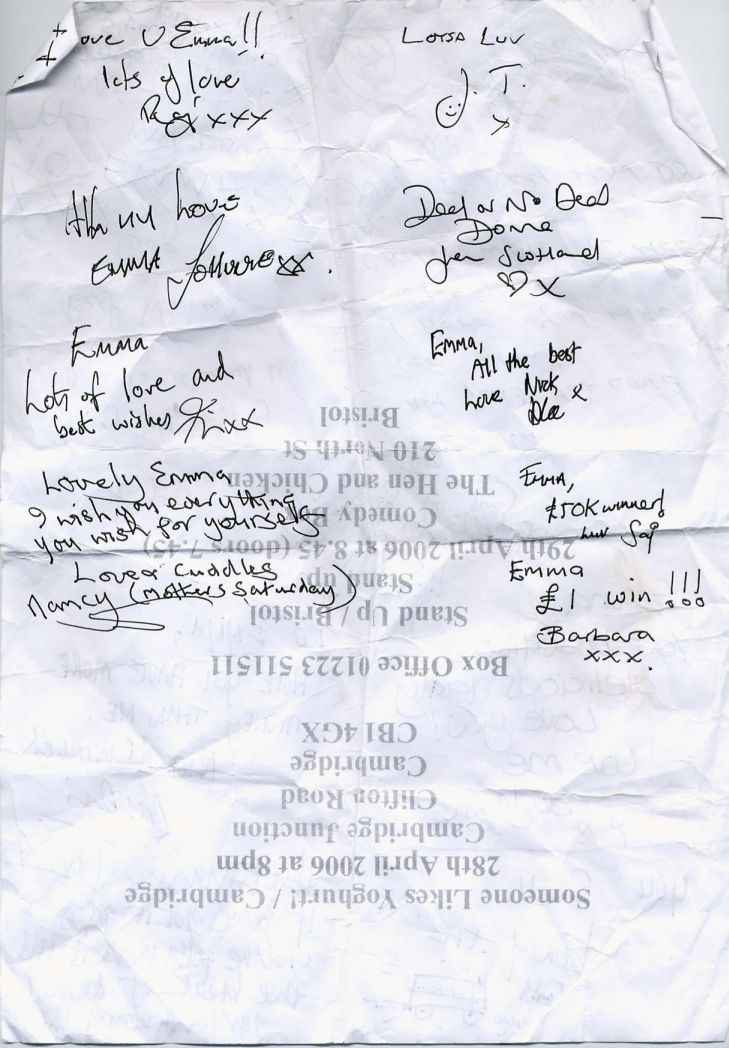 I love U Emma!!
lots of love
xxx
Lotsa Luv
J. T.
x
All my love
EMMA xx.
Deal or No Deal
Donna
from Scotland
X
Emma
Lots of love and
best wishes xx
Emma,
All the best
Love Nick
x
Lovely Emma
I wish you everything
you wish for yourself
Love & Cuddles
Nancy (Mothers Saturday)
Emma,
£50K winner!
Luv
Emma
£1 win !!!
Barbara
xxx.
Someone Likes Yoghurt! / Cambridge
28th April 2006 at 8pm
Cambridge Junction
Clifton Road
Cambridge
CB1 4GX
Box Office 01223 511511
Stand Up / Bristol
Stand up
29th April 2006 at 8.45 (doors 7.45)
Comedy
The Hen and Chicken
210 North St
Bristol